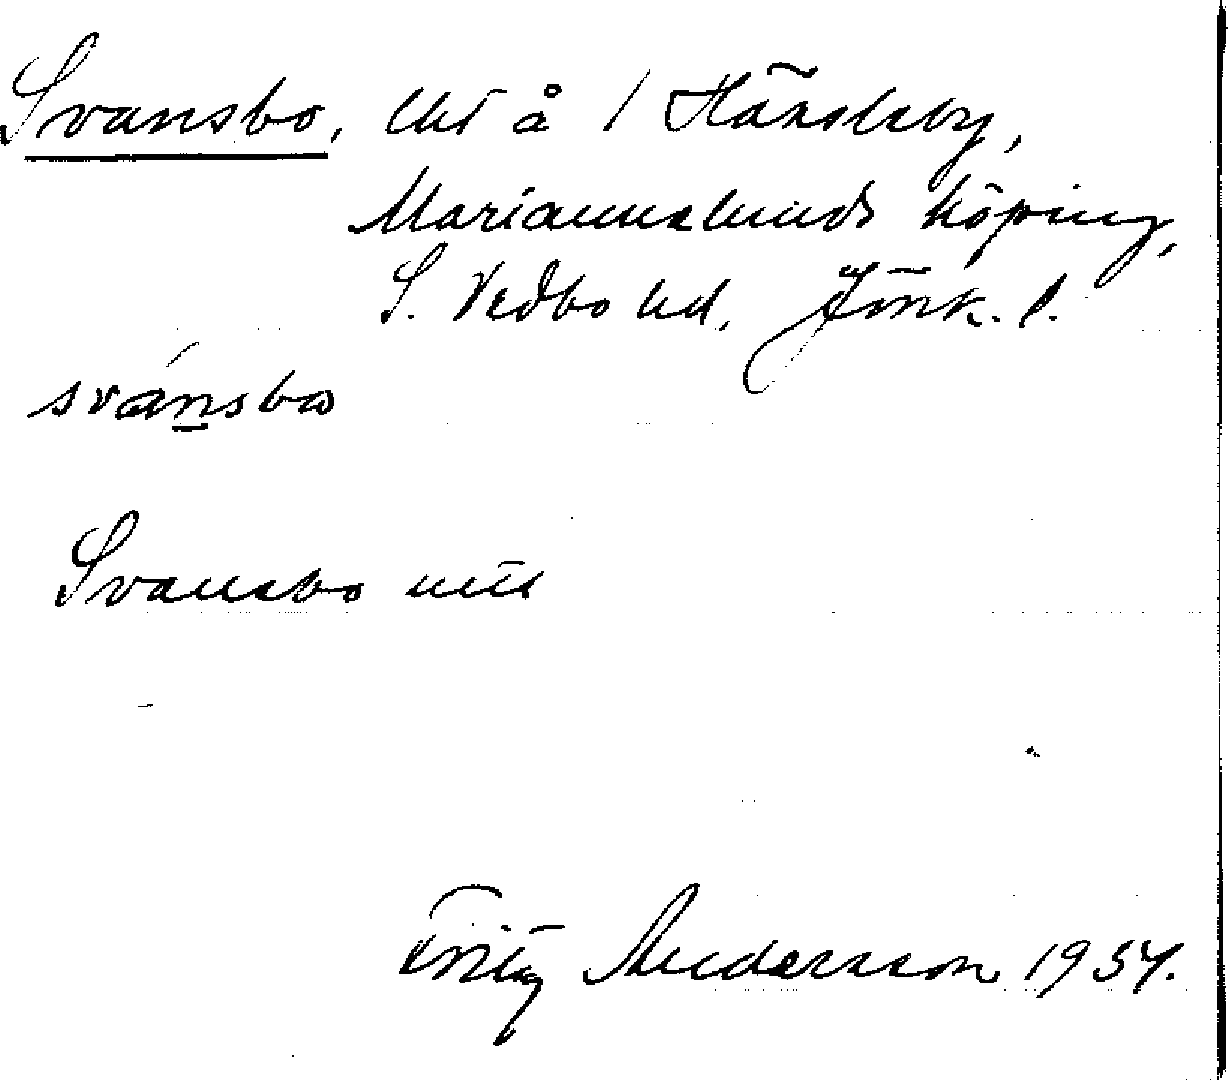 Svansbo, lht å 1 Hässleby,
Mariannelunds köping,
S. Vedbo hd, Jönk. l.
svánsbω
Svansbo
Fritz Andersson 1954.